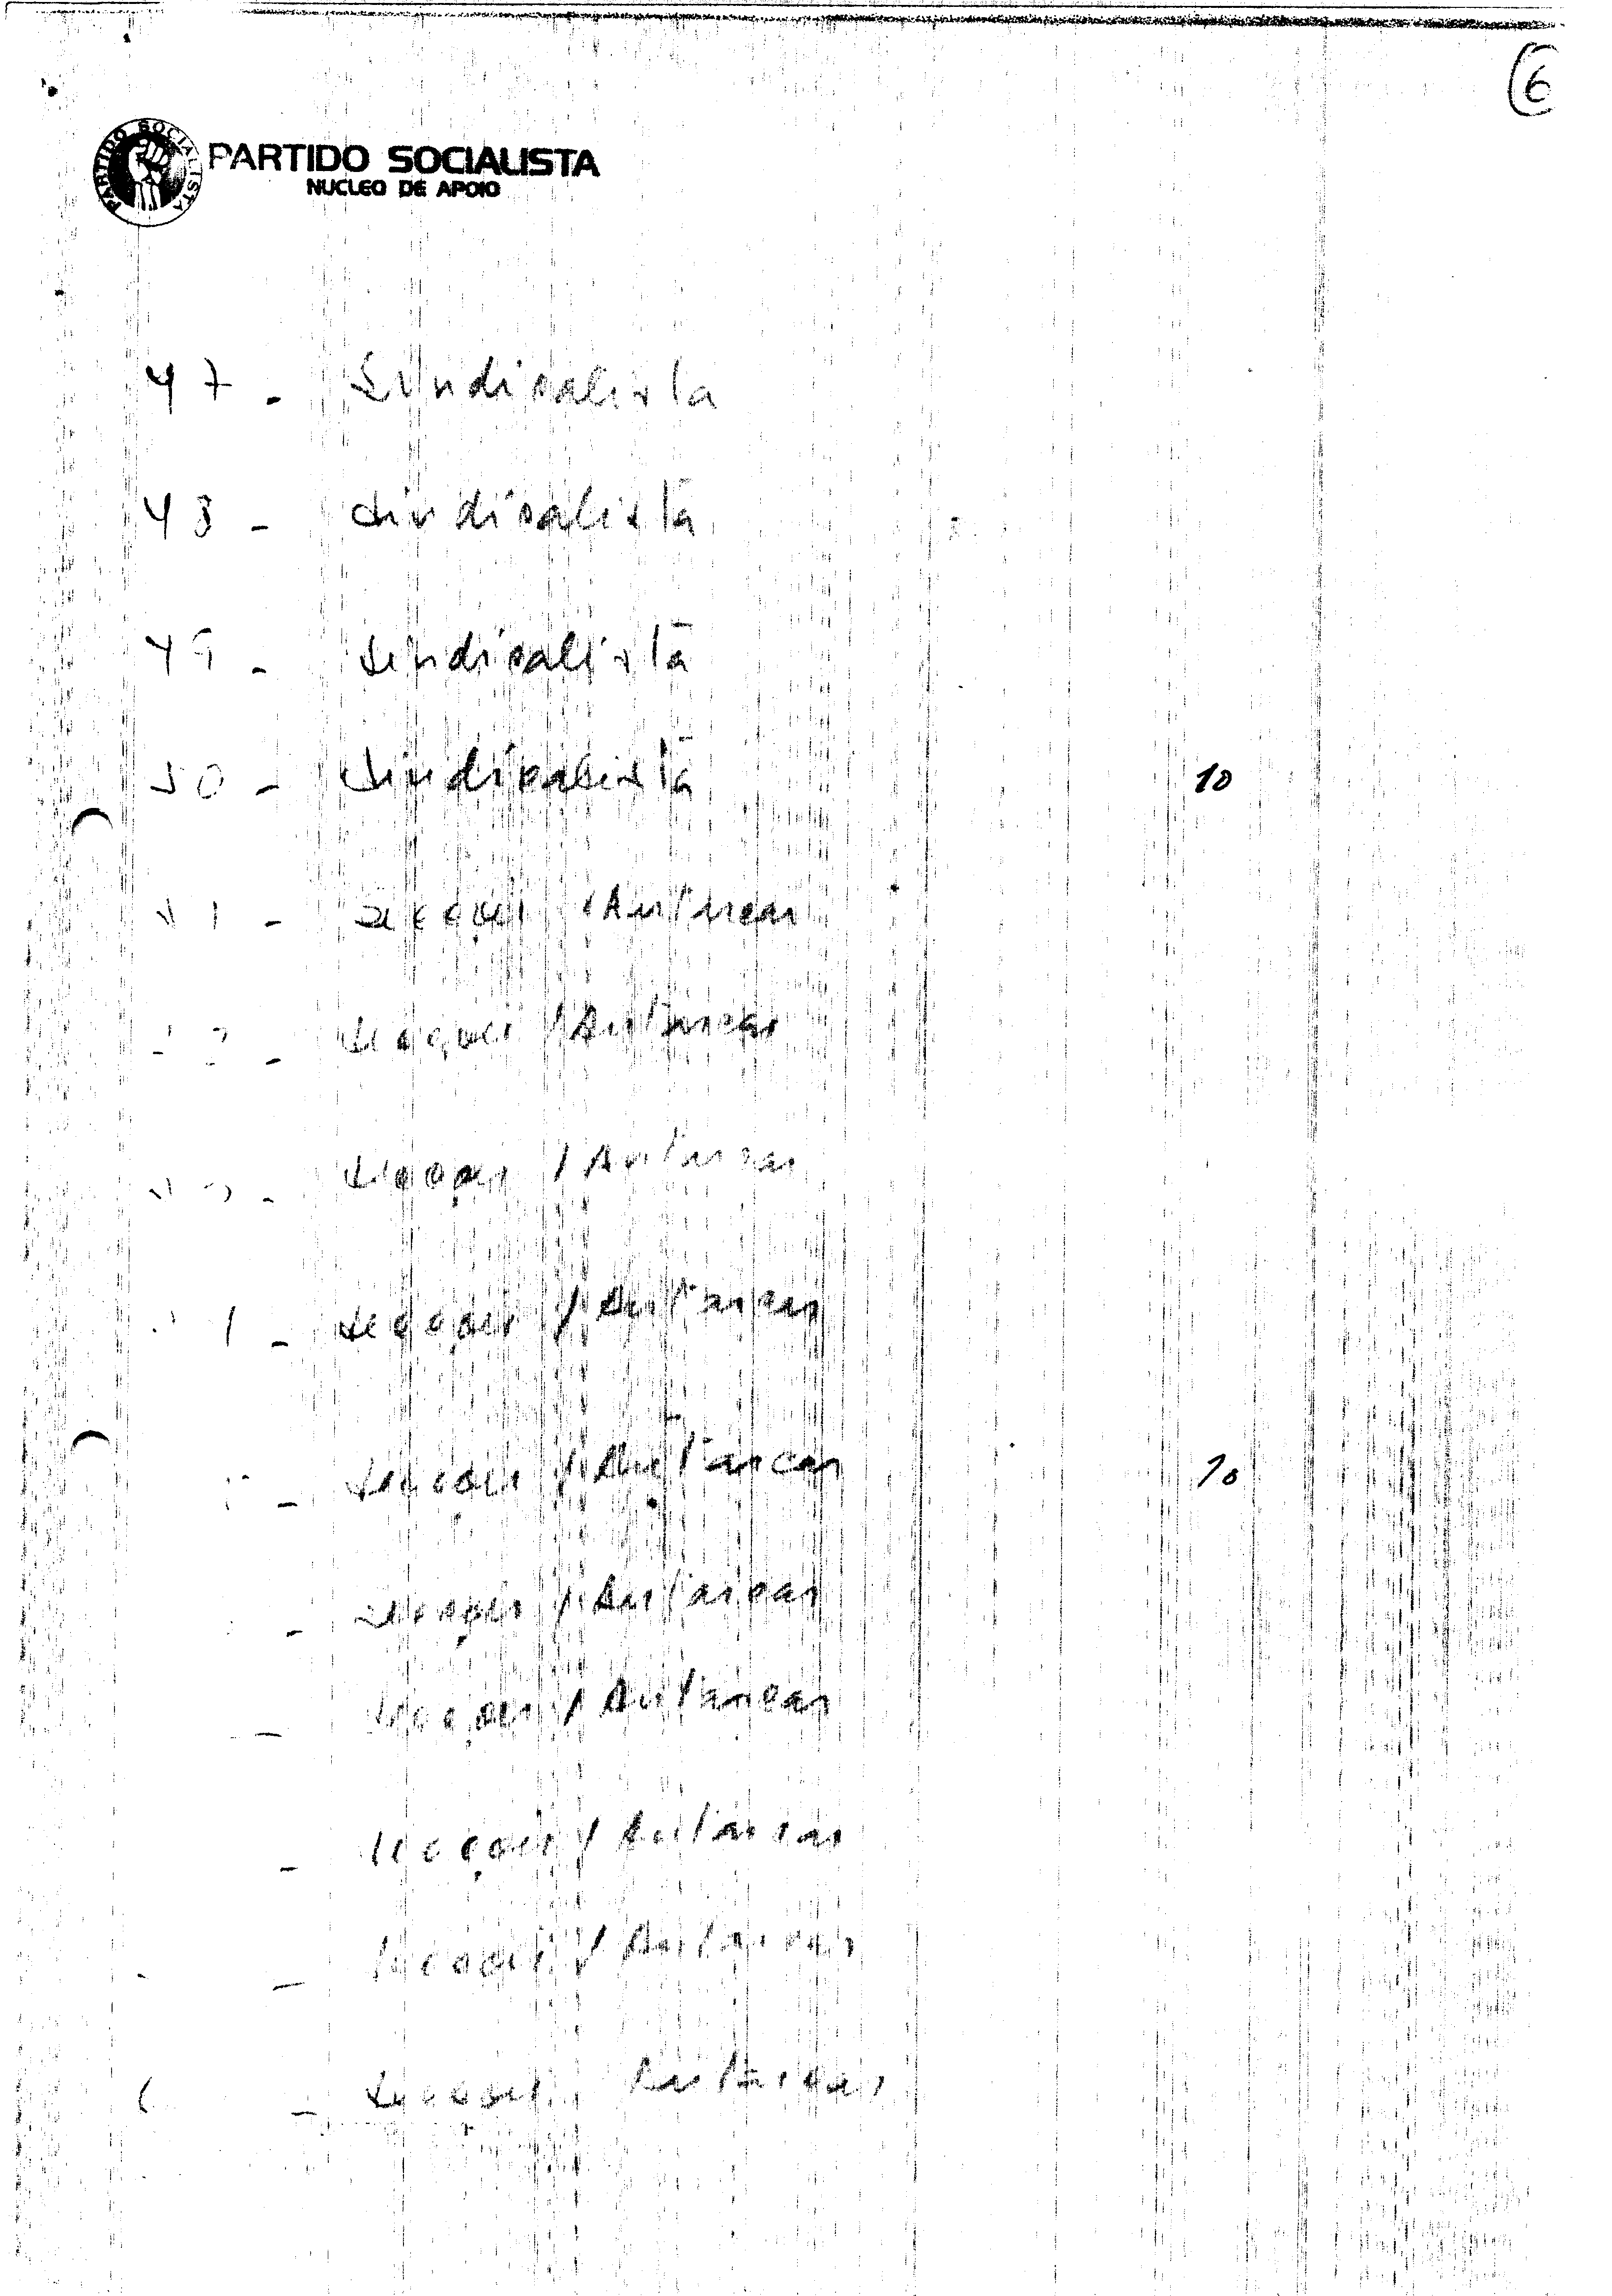 6
PARTIDO SOCIALISTA
PARTIDO SOCIALISTA
NUCLEO DE APOIO
47 - Sindicalista
48 - Sindicalista
49 - Sindicalista
50 - Sindicalista 10
- Secções / Autarcas
- Secções / Autarcas
- Secções / Autarcas
- Secções / Autarcas
- Secções / Autarcas 10
- Secções / Autarcas
- Secções / Autarcas
- Secções / Autarcas
- Secções / Autarcas
- Secções / Autarcas